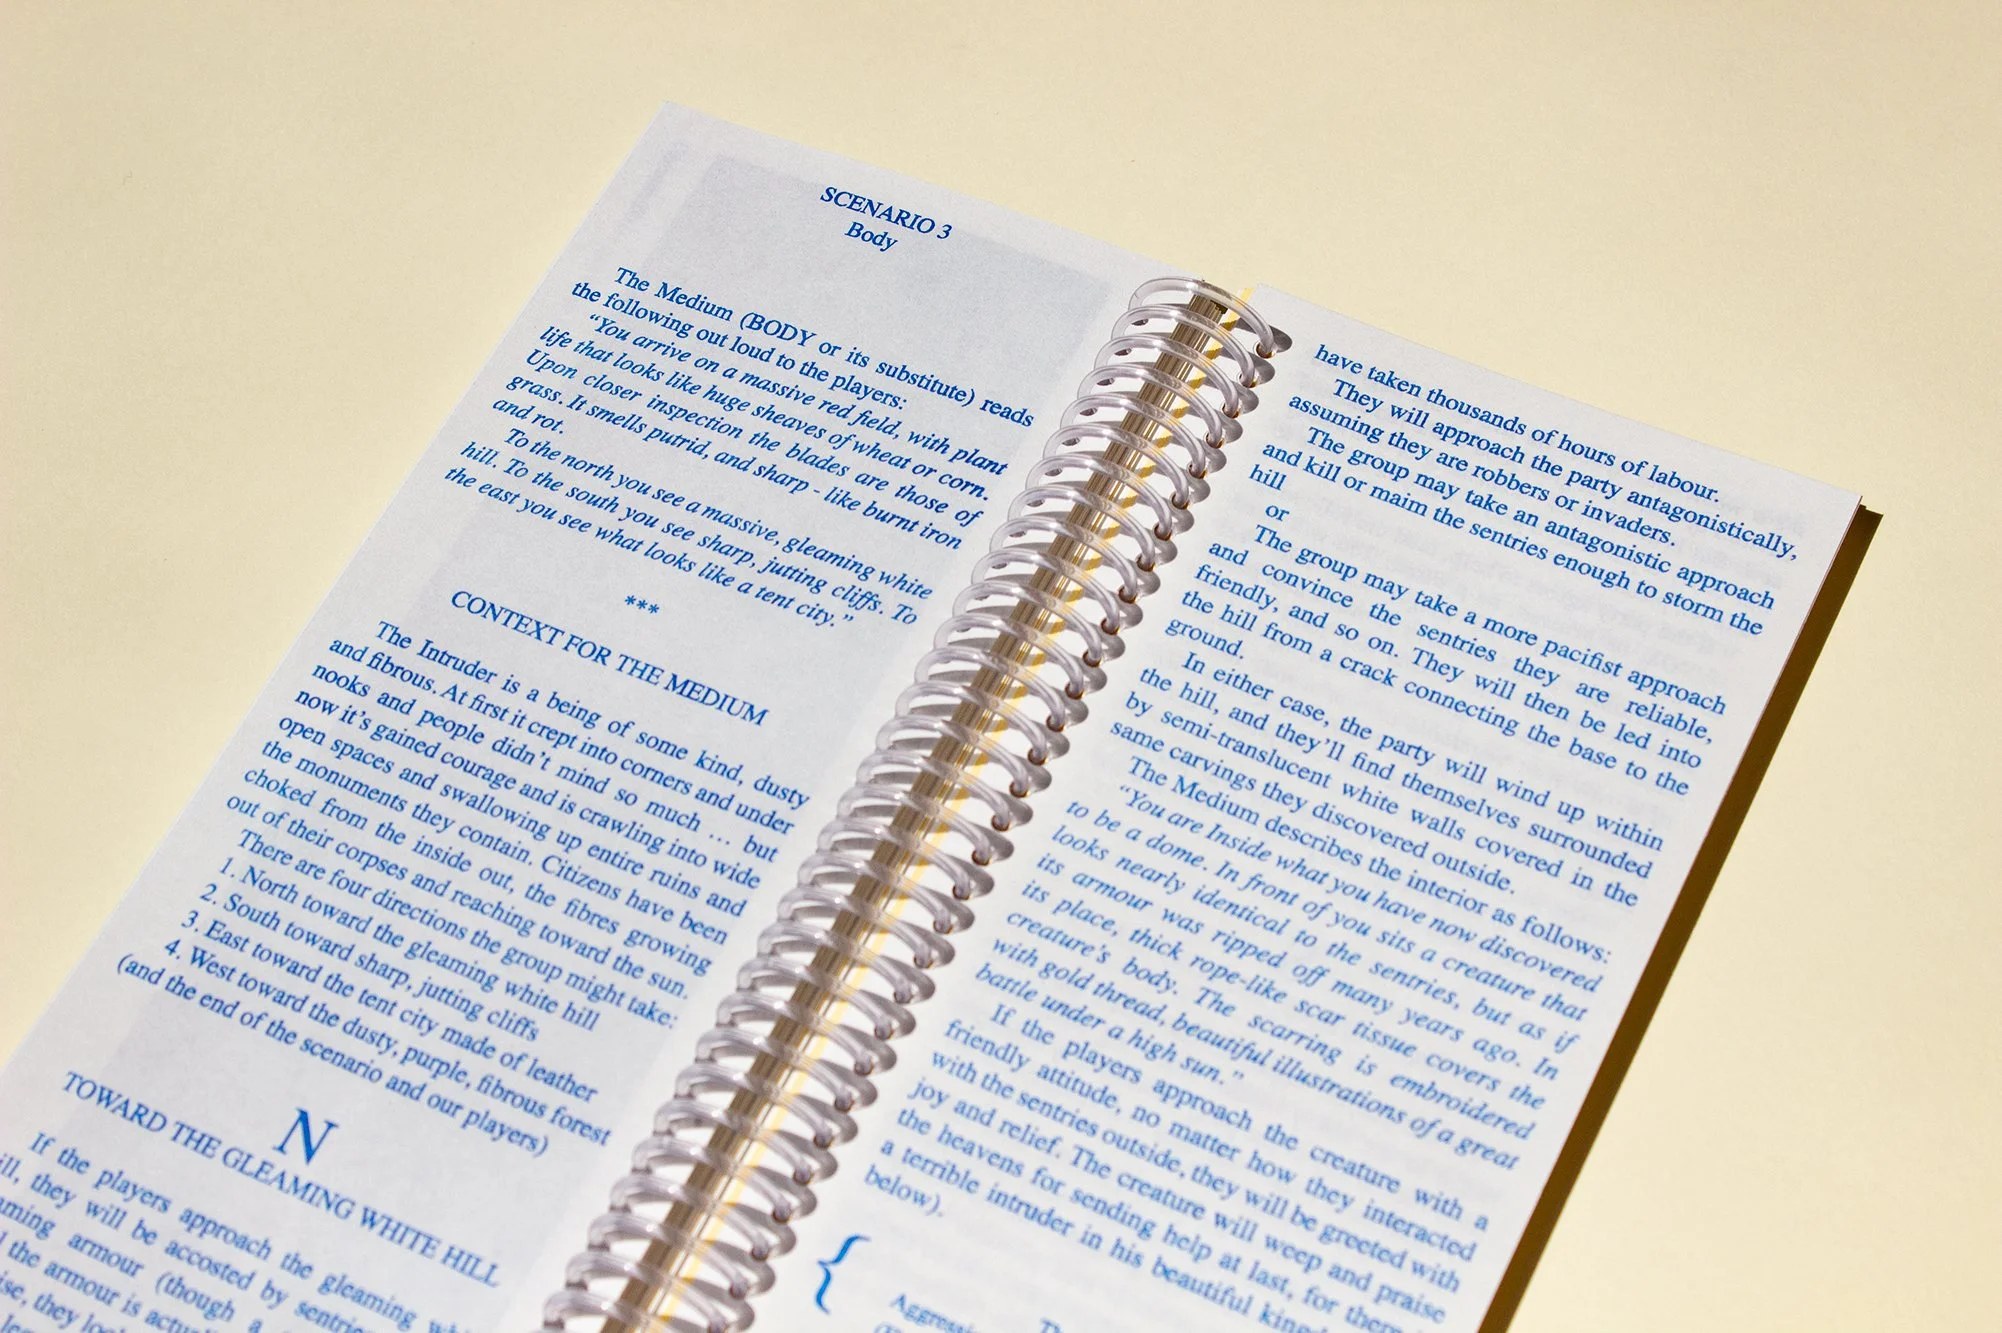 SCENARIO 3
Body
The Medium (BODY or its substitute) reads
the following out loud to the players:
“You arrive on a massive red field, with plant
life that looks like huge sheaves of wheat or corn.
Upon closer inspection the blades are those of
grass. It smells putrid, and sharp - like burnt iron
and rot.
To the north you see a massive, gleaming white
hill. To the south you see sharp, jutting cliffs. To
the east you see what looks like a tent city.”
***
CONTEXT FOR THE MEDIUM
The Intruder is a being of some kind, dusty
and fibrous. At first it crept into corners and under
nooks and people didn’t mind so much ... but
now it’s gained courage and is crawling into wide
open spaces and swallowing up entire ruins and
the monuments they contain. Citizens have been
choked from the inside out, the fibres growing
out of their corpses and reaching toward the sun.
There are four directions the group might take:
1. North toward the gleaming white hill
2. South toward sharp, jutting cliffs
3. East toward the tent city made of leather
4. West toward the dusty, purple, fibrous forest
(and the end of the scenario and our players)
N
TOWARD THE GLEAMING WHITE HILL
If the players approach the gleaming
they will be accosted by
armour (though a
the armour is
they
have taken thousands of hours of labour.
They will approach the party antagonistically,
assuming they are robbers or invaders.
The group may take an antagonistic approach
and kill or maim the sentries enough to storm the
hill
or
The group may take a more pacifist approach
and convince the sentries they are reliable,
friendly, and so on. They will then be led into
the hill from a crack connecting the base to the
ground.
In either case, the party will wind up within
the hill, and they’ll find themselves surrounded
by semi-translucent white walls covered in the
same carvings they discovered outside.
The Medium describes the interior as follows:
“You are Inside what you have now discovered
to be a dome. In front of you sits a creature that
looks nearly identical to the sentries, but as if
its armour was ripped off many years ago. In
its place, thick rope-like scar tissue covers the
creature’s body. The scarring is embroidered
with gold thread, beautiful illustrations of a great
battle under a high sun.”
If the players approach the creature with a
friendly attitude, no matter how they interacted
with the sentries outside, they will be greeted with
joy and relief. The creature will weep and praise
the heavens for sending help at last, for
a terrible intruder in his beautiful
below).
{